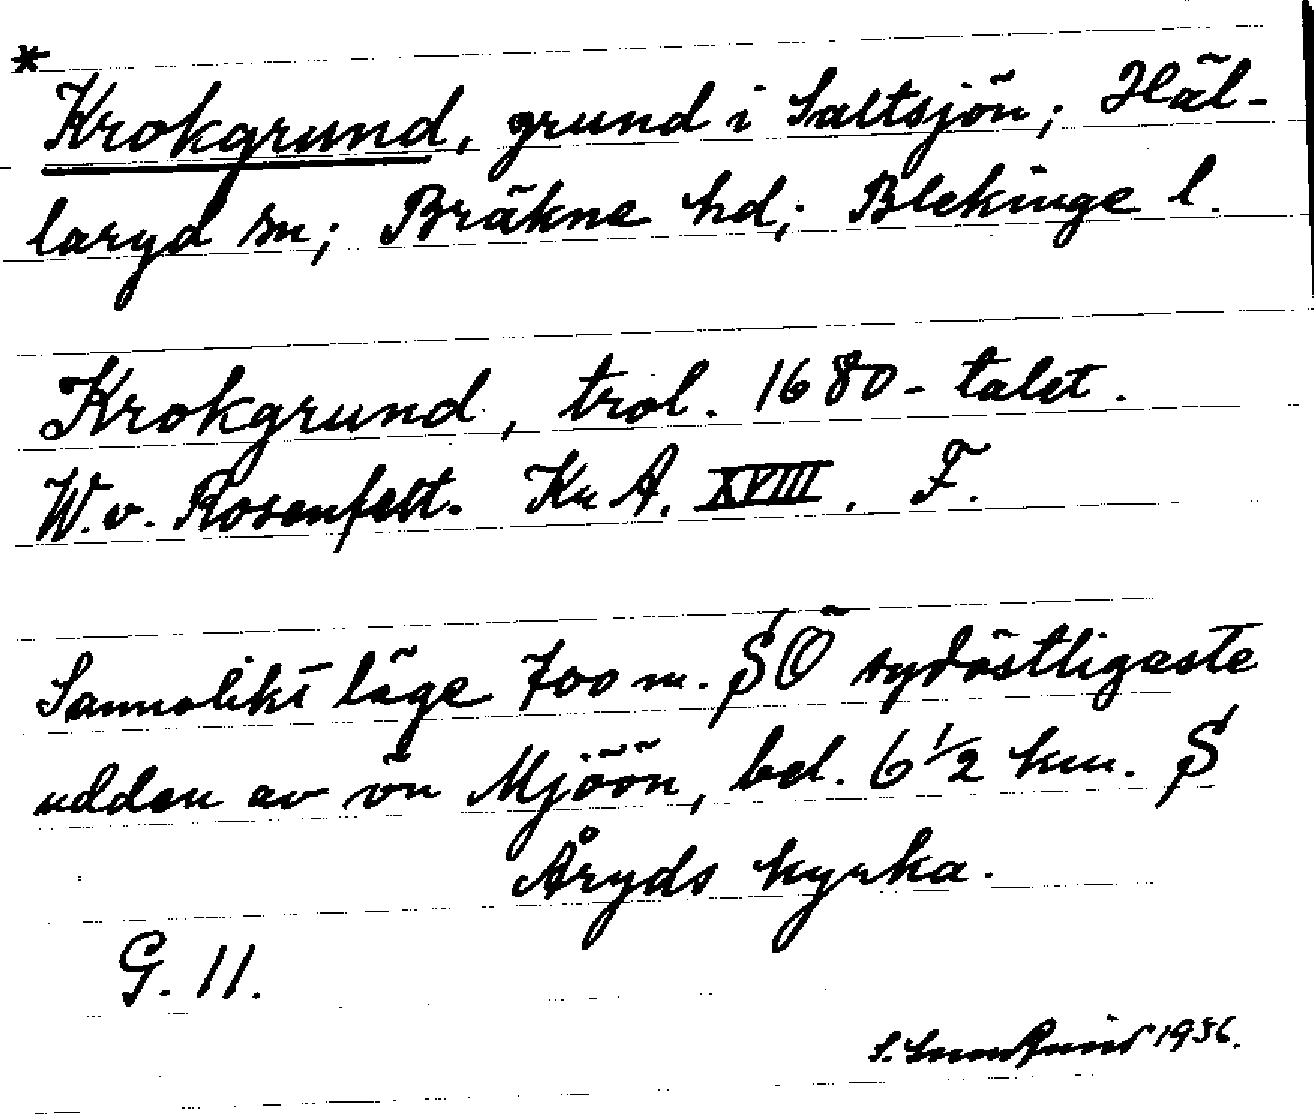 * Krokgrund, grund i Saltsjön; Häl-
laryd sn; Bräkne hd; Blekinge l.
Krokgrund, trol. 1680-talet.
W. v. Rosenfelt. Kr A. XVIII. F.
Sannolikt läge 700 m. SÖ sydöstligaste
udden av ön Mjöön, bel. 6 1/2 km. S
Åryds kyrka.
G. 11.
S. 1956.